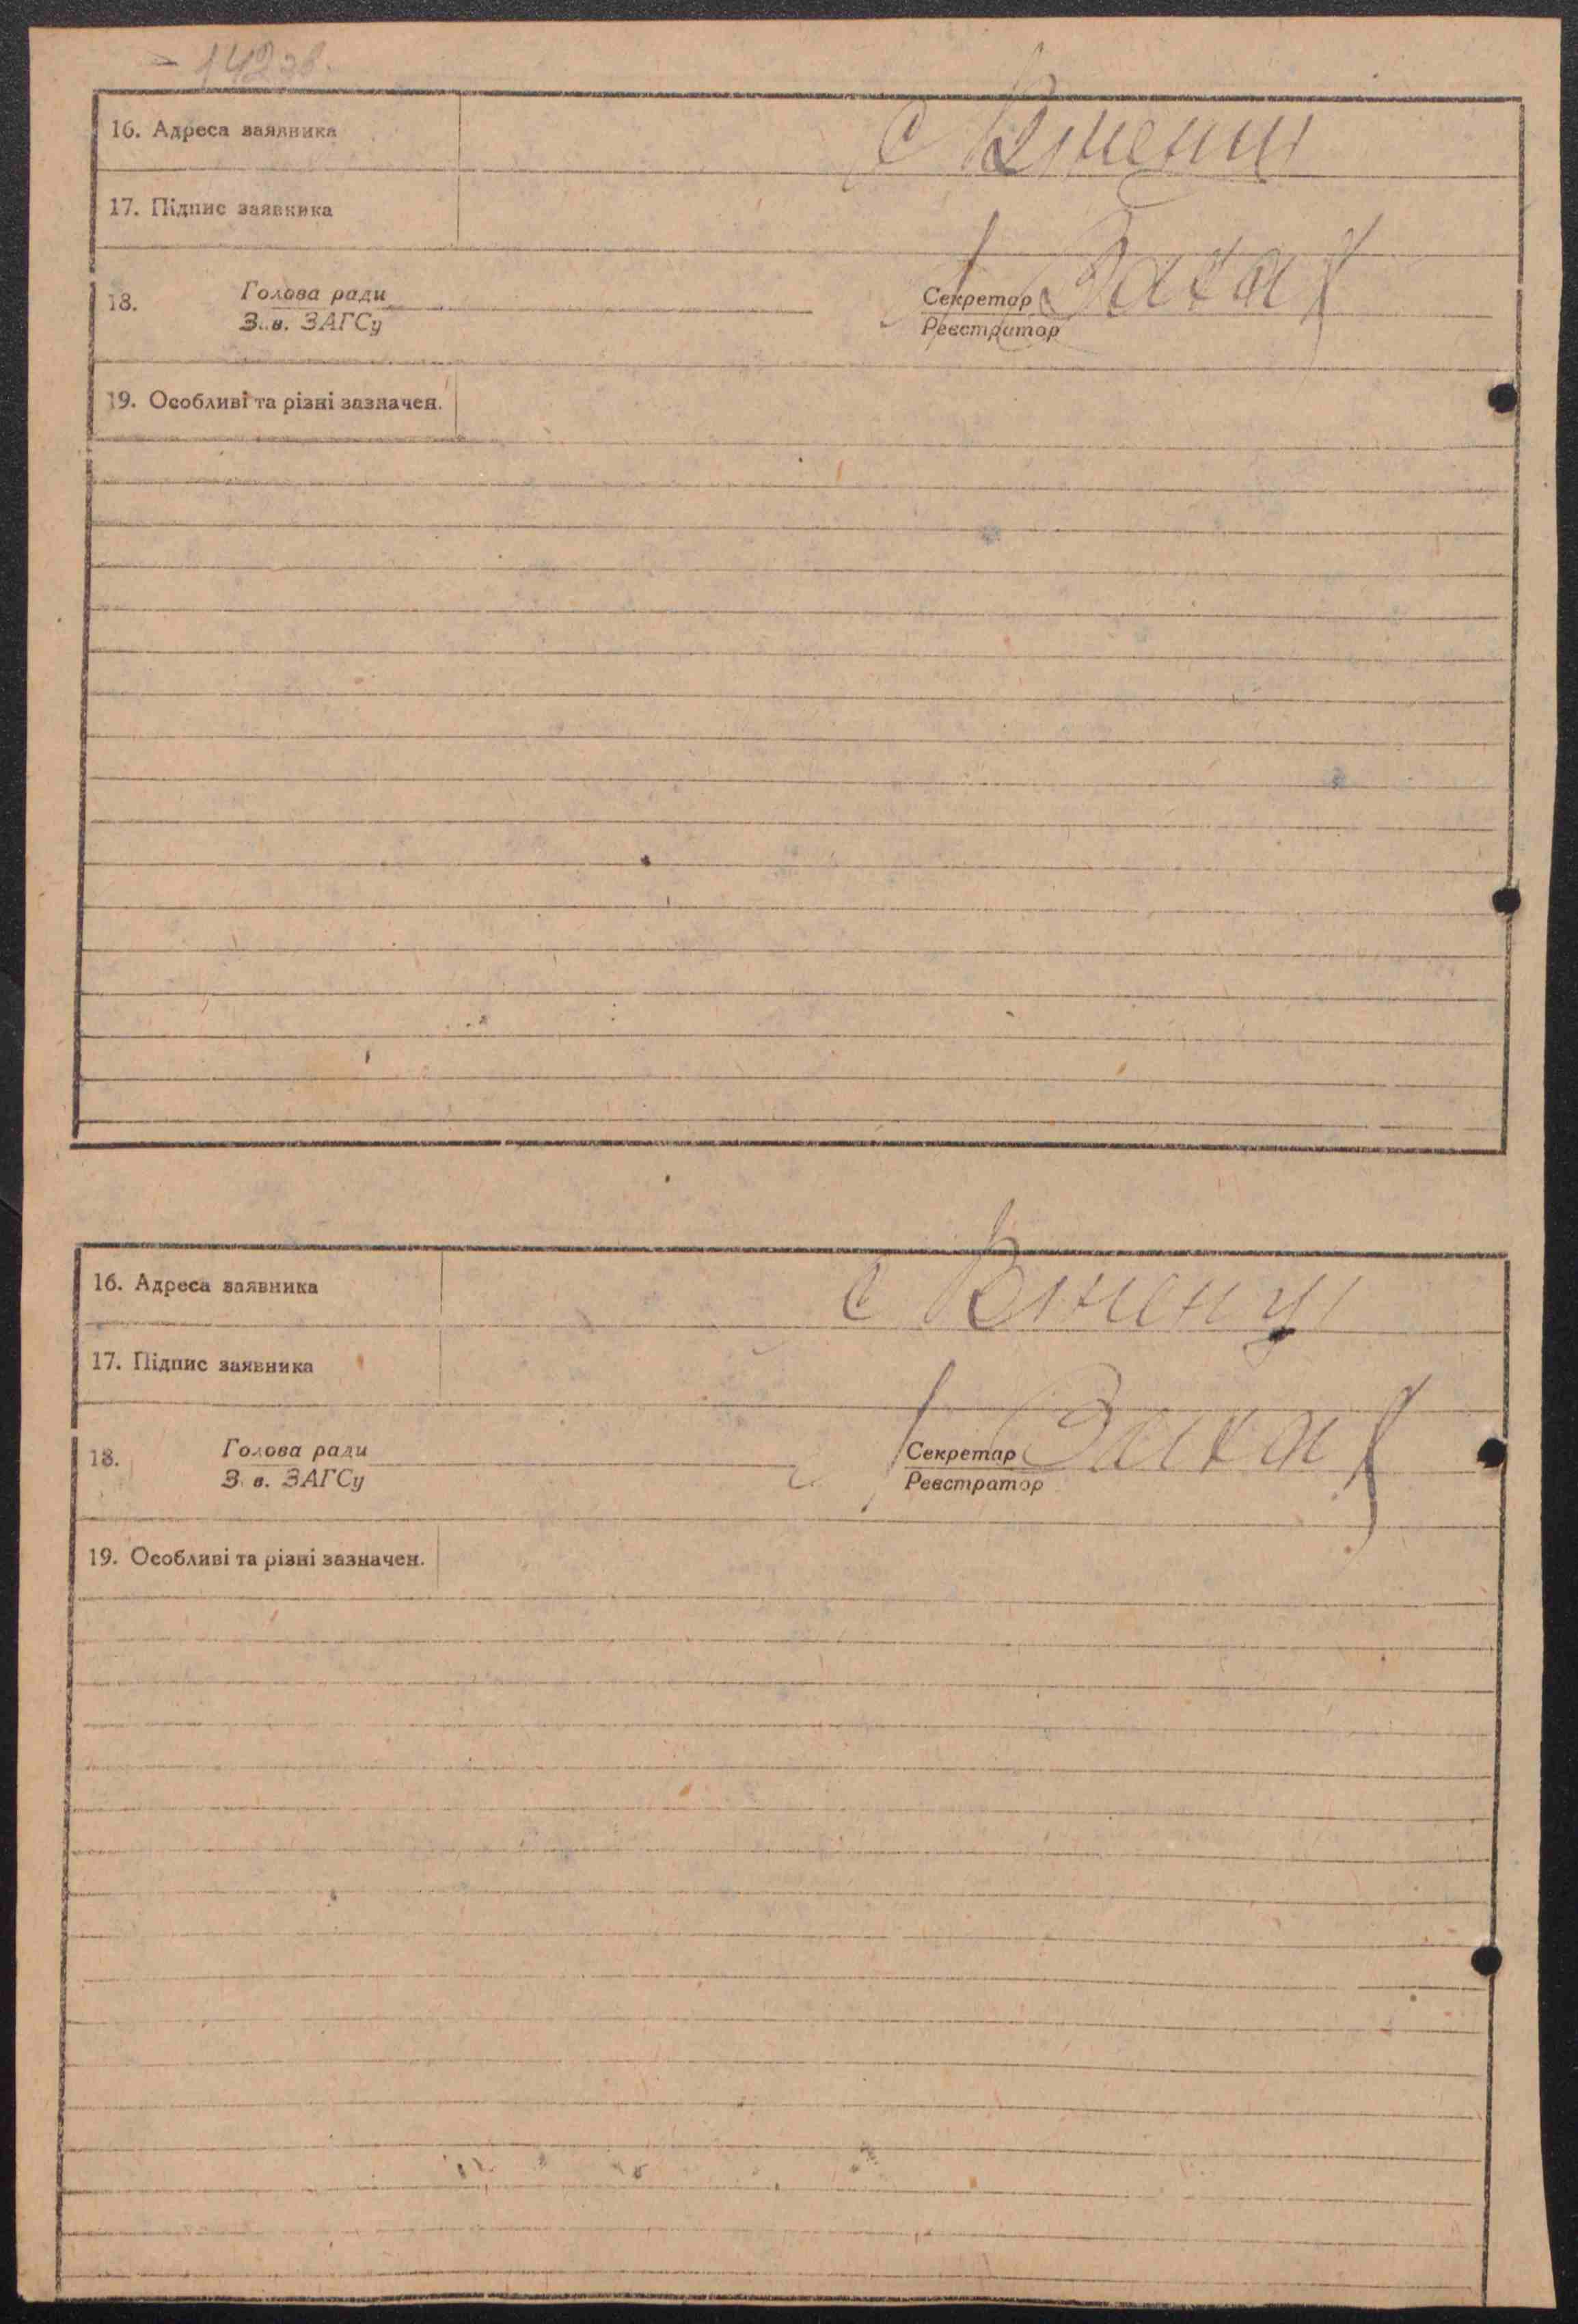 142 зв.
16. Адреса заявника
17. Підпис заявника
18. Голова ради Секретар
З. в. ЗАГСу Реєстратор
19. Особливі та різні зазначен.
16. Адреса заявника
17. Підпис заявника
18. Голова ради Секретар
З. в. ЗАГСу Реєстратор
19. Особливі та різні зазначен.